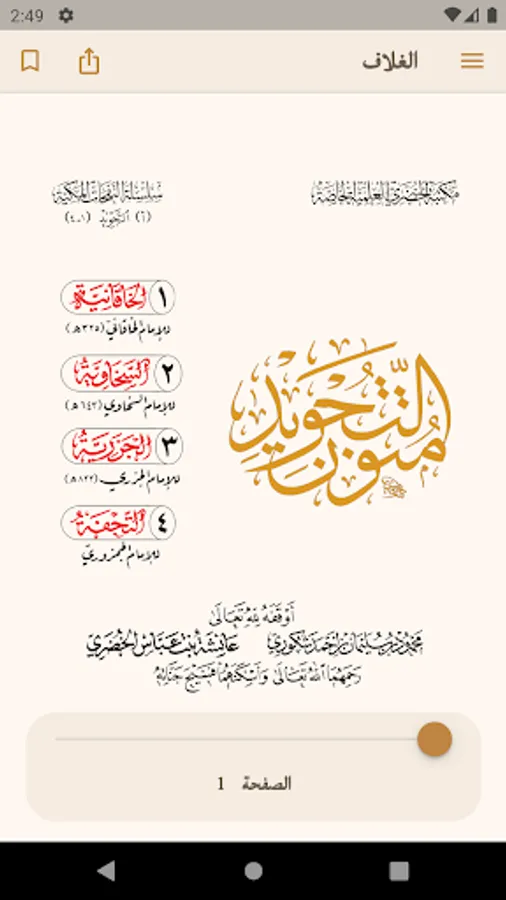 2:49
الغلاف
مكتبة الخضري العلمية الخاصة
سلسلة النفحات المكية
(٦) التجويد (١-٤)
متون التجويد
١ الخاقانية
للإمام الخاقاني (٣٢٥هـ)
٢ السخاوية
للإمام السخاوي (٦٤٣هـ)
٣ الجزرية
للإمام الجزري (٨٣٣هـ)
٤ التحفة
للإمام الجمزوري
أوقفه لله تعالى
محمود بن سليمان بن أحمد شكوري عائشة بنت عباس الخضري
رحمهما الله تعالى وأسكنهما فسيح جنانه
الصفحة 1